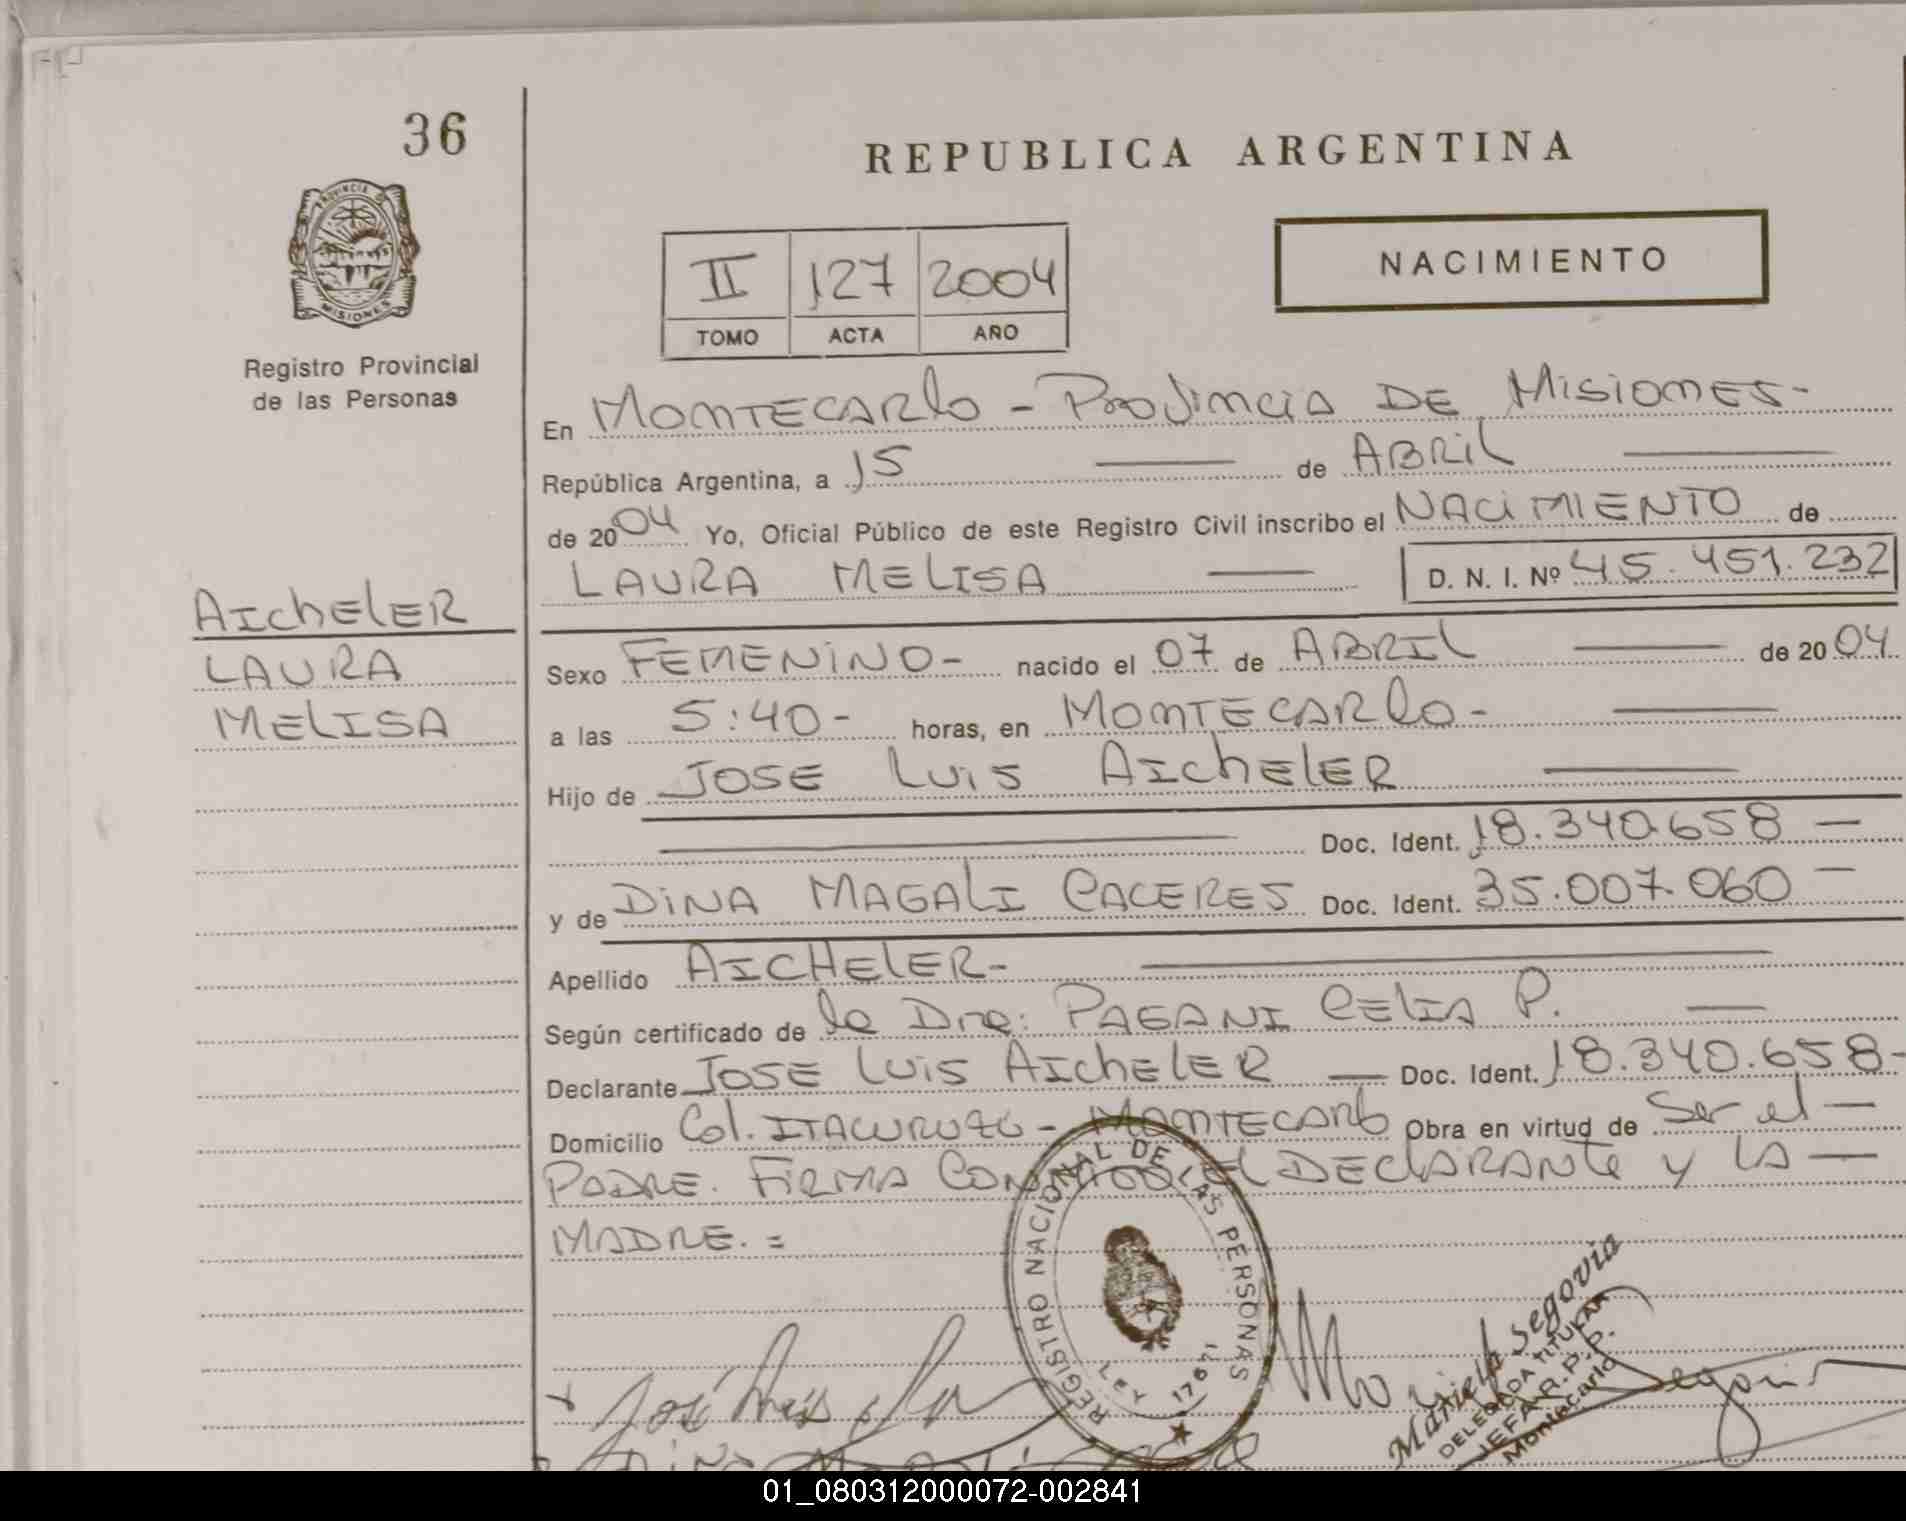 36
REPUBLICA ARGENTINA
PROVINCIA D
MISIONES
Registro Provincial
de las Personas
II 127 2004
TOMO ACTA AÑO
NACIMIENTO
En MONTECARlo - PROVINCIA DE MISIONES-
República Argentina, a 15 de ABRIL
de 2004 Yo, Oficial Público de este Registro Civil inscribo el NACIMIENTO de
LAURA MELISA D. N. I. Nº 45.451.232
AIChELER
LAURA
MELISA
Sexo FEMENINO- nacido el 07 de ABRIL de 2004
a las 5:40- horas, en MONTECARlo-
Hijo de JOSE LUIS AIChELER
Doc. Ident. 18.340.658 —
y de DINA MAGALI CACERES Doc. Ident. 35.007.060 —
Apellido AICHELER-
Según certificado de la Dra: PAGANI CELIA P. —
Declarante JOSE LUIS AIChELER — Doc. Ident. 18.340.658-
Domicilio Col. ITACURUZÚ - MONTECARlo Obra en virtud de Ser el —
PADRE. FIRMA CONMIGO EL DECLARANTE Y LA —
MADRE. =
REGISTRO NACIONAL DE LAS PERSONAS
José Luis
Mariela Segovia
DELEGADA TITULAR
Montecarlo
01_080312000072-002841